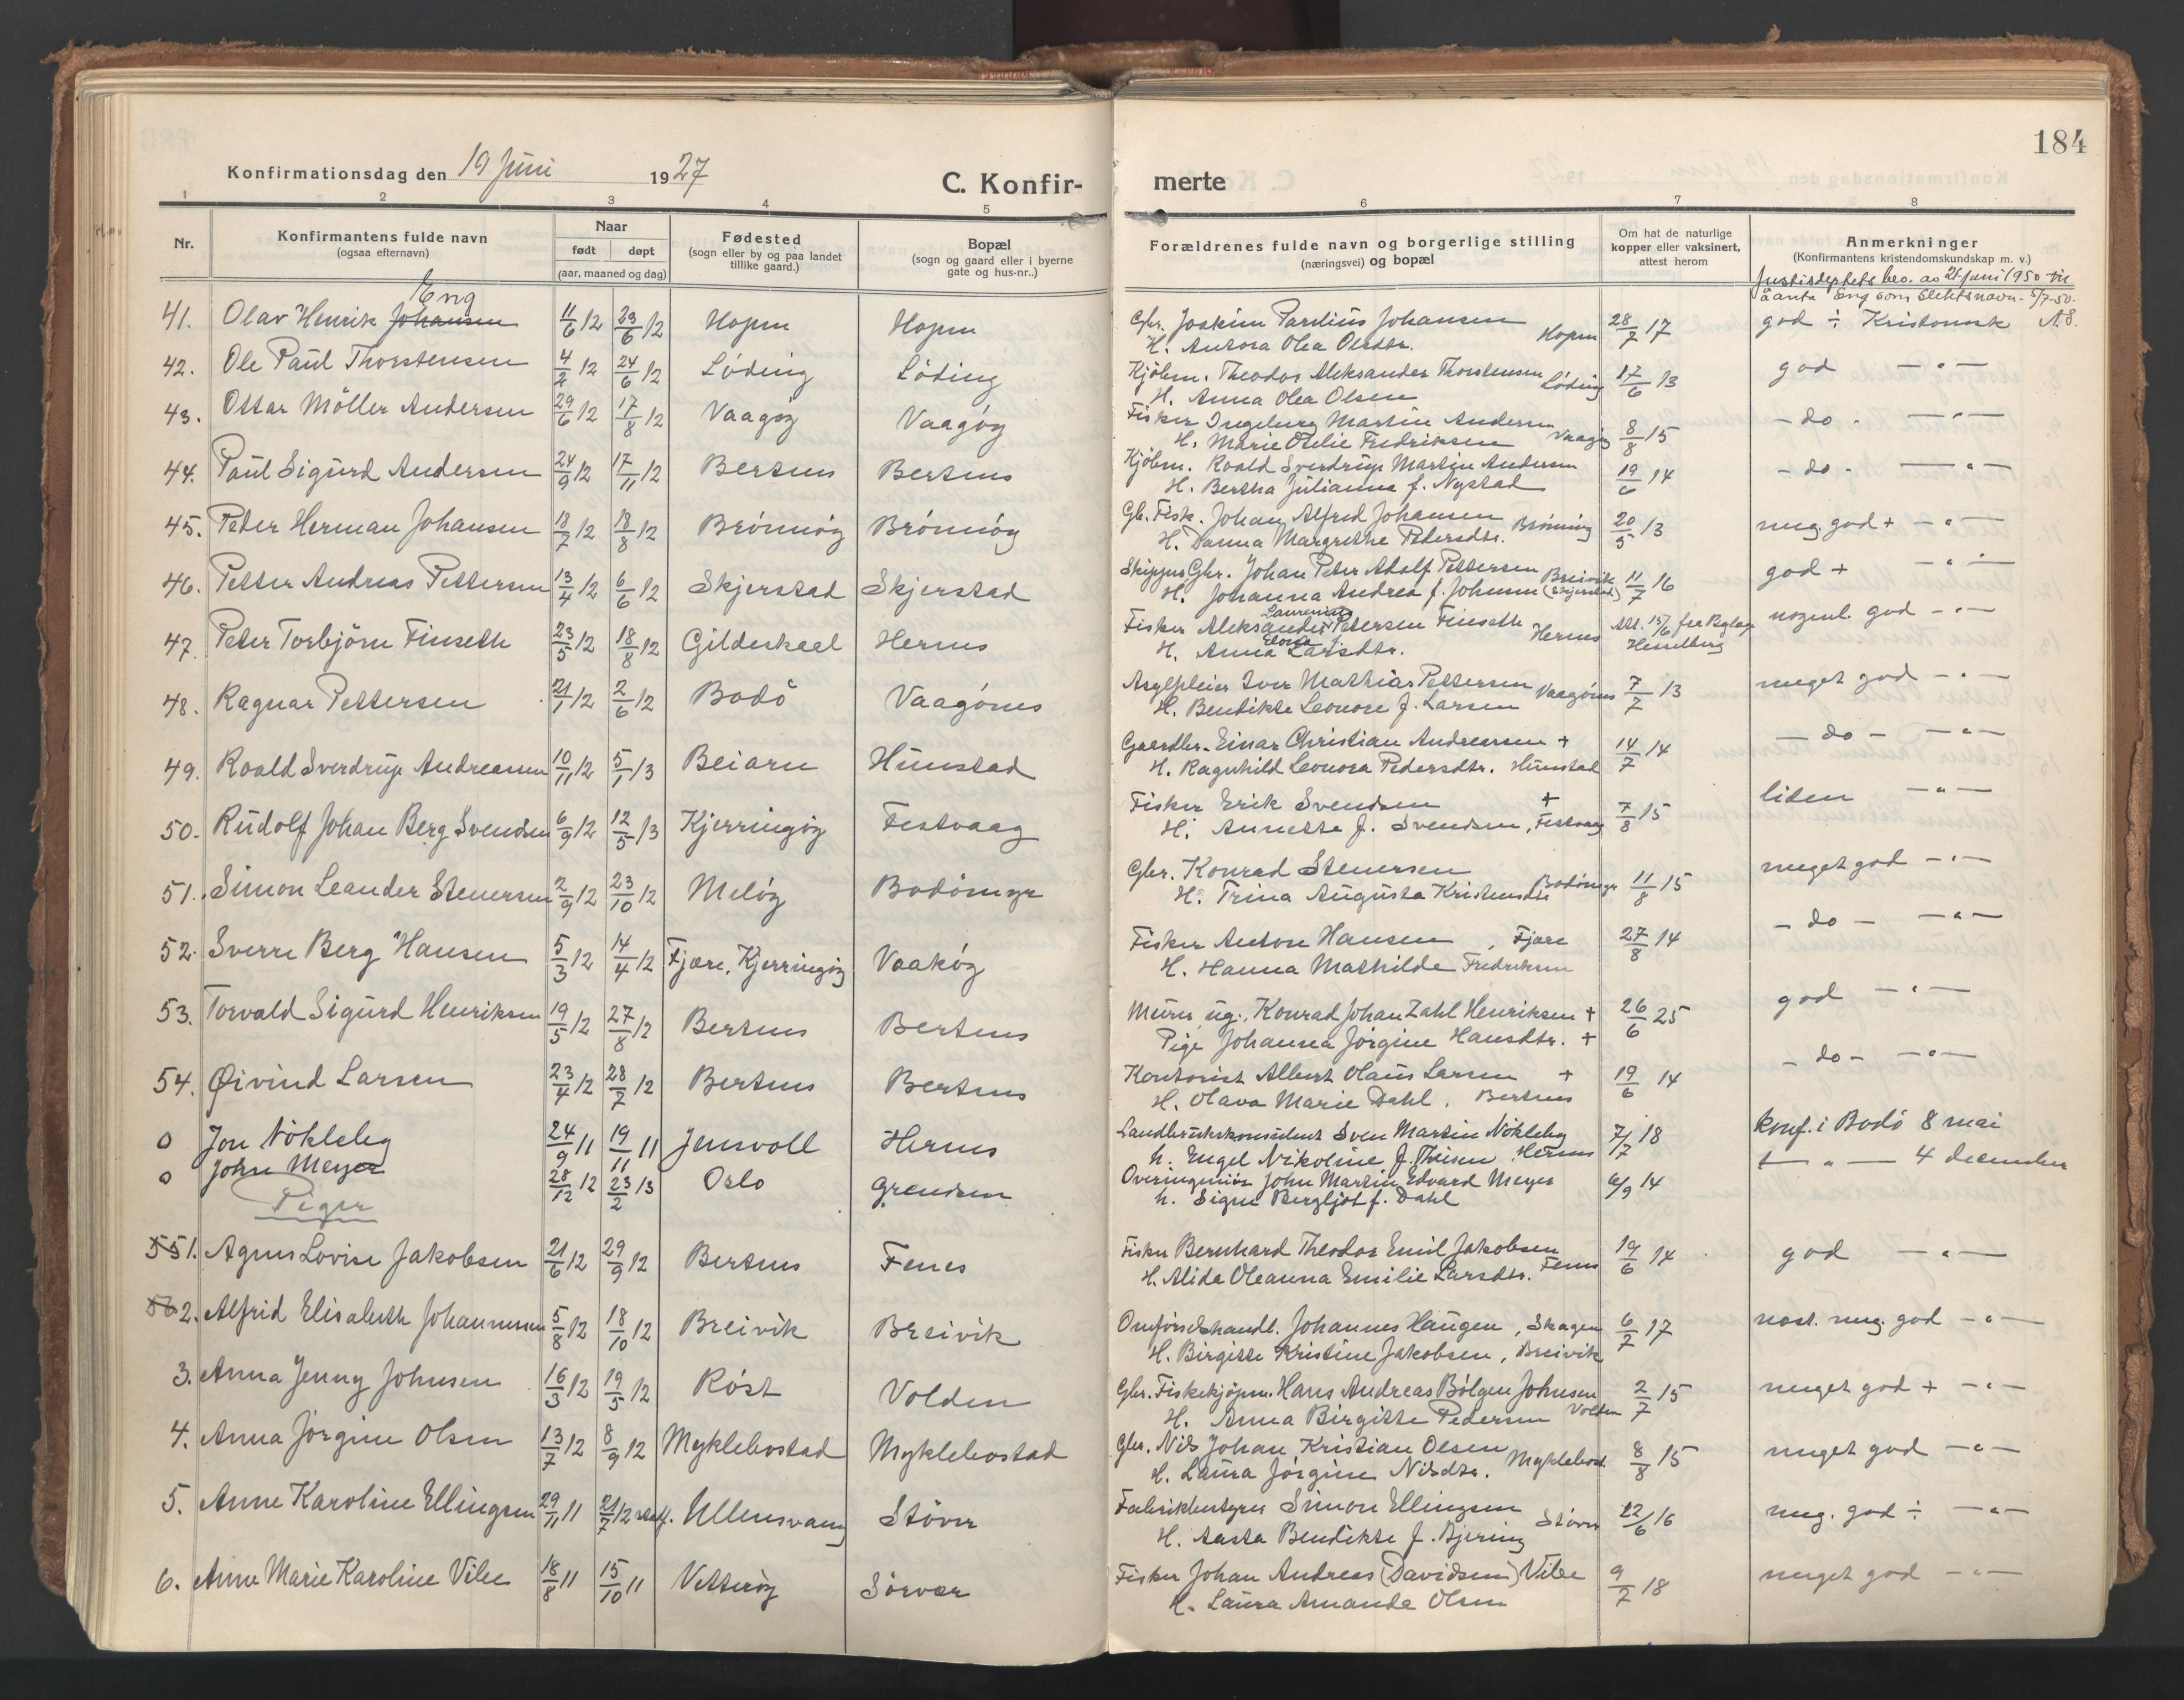 184
Konfirmationsdag den 19 Juni 1927
C. Konfirmerte
1 2 3 4 5 6 7 8
Nr.
Konfirmantens fulde navn
(ogsaa efternavn)
Naar
født døpt
(aar, maaned og dag)
Fødested
(sogn eller by og paa landet
tillike gaard.)
Bopæl
(sogn og gaard eller i byerne
gate og hus-nr..)
Forældrenes fulde navn og borgerlige stilling
(næringsvei) og bopæl
Om hat de naturlige
kopper eller vaksinert,
attest herom
Anmerkninger
(Konfirmantens kristendomskundskap m. v.)
Justisdeptets bev. av 21 juni 1950 til
å anta Eng som slektsnavn. 5/7-50.
A.S.
Eng
41. Olav Henrik Johansen 11/6 12 23/6 12 Hopen Hopen Gbr. Joakim Parelius Johansen Hopen 28/7 17 god ÷ Kristomsk
H. Aurora Olea Olsdtr.
42. Ole Paul Thorstensen 4/2 12 24/6 12 Løding Løding Kjöbm. Theodor Aleksander Thorstensen Løding 17/6 13 god - " -
H. Anna Olea Olsen
43. Ottar Möller Andersen 29/6 12 17/8 12 Vaagöy Vaagöy Fisker Ingeburg Martin Andersen Vaagöy 8/8 15 - do - - " -
H. Marie Otelie Fredriksen
44. Paul Sigurd Andersen 24/9 12 17/11 12 Bertnes Bertnes Kjöbm. Roald Sverdrup Martin Andersen 19/6 14 - do - - " -
H. Bertha Julianna f. Nystad
45. Peder Herman Johansen 18/7 12 18/8 12 Brönnöy Brönnöy Gbr. Fisk. Johan Alfred Johansen Brönnöy 20/5 13 meg. god + - " -
H. Danna Margrethe Petersdtr.
46. Petter Andreas Pettersen 13/4 12 6/6 12 Skjerstad Skjerstad Skipper Gbr. Johan Peter Adolf Pettersen Breivik 11/7 16 god + - " -
H. Johanna Andrea f. Johnsen (Skjerstad)
47. Peter Torbjörn Finseth 23/5 12 18/8 12 Gildeskaal Hernes Fisker Aleksander Laurenius Petersen Finseth Hernes Att. 15/6 fra Hesselberg nogenl. god - " -
H. Anna Larsdtr.
48. Ragnar Pettersen 21/1 12 2/6 12 Bodö Vaagönes Asylpleier Iver Mathias Pettersen Vaagönes 7/7 13 meget god - " -
H. Bendikte Leonore f. Larsen
49. Roald Sverdrup Andreassen 10/11 12 5/1 13 Beiarn Hunstad Gaardbr. Einar Christian Andreassen + 14/7 14 - do - - " -
H. Ragnhild Leonora Pedersdtr. Hunstad
50. Rudolf Johan Berg Svendsen 6/9 12 12/5 13 Kjerringöy Festvaag Fisker Erik Svendsen + 7/8 15 liten - " -
H. Annette f. Svendsen, Festvaag
51. Simon Leander Stenersen 2/9 12 23/10 12 Melöy Bodömyr Gbr. Konrad Stenersen Bodömyr 11/8 15 meget god - " -
H. Trina Augusta Kristensdtr
52. Sverre Berg Hansen 5/3 12 14/4 12 Fjære, Kjerringöy Vaaköy Fisker Anton Hansen, Fjære 27/8 14 - do - - " -
H. Hanna Mathilde Fredriksen
53. Torvald Sigurd Henriksen 19/5 12 27/8 12 Bertnes Bertnes Murer, ug. Konrad Johan Zahl Henriksen + 26/6 25 god - " -
Pige Johanna Jörgine Hansdtr. +
54. Øivind Larsen 23/4 12 28/7 12 Bertnes Bertnes Kontorist Albert Olaus Larsen + 19/6 14 - do - - " -
H. Olava Marie Dahl. Bertnes
0 Jon Nökleby 24/9 11 19/11 11 Jensvoll Hernes Landbrukskonsulent Sven Martin Nökleby 7/7 18 konf. i Bodö 8 mai
h. Engel Nikoline f. Hernes
0 John Meyer 28/12 12 23/2 13 Oslo Grendsen Overingeniör John Martin Edvard Meyer 6/9 14 - " - 4 december
h. Signe Bergljot f. Dahl
Piger
55 1. Agnes Lovise Jakobsen 21/6 12 29/9 12 Bertnes Fenes Fisker Bernhard Theodor Emil Jakobsen Fenes 19/6 14 god - " -
H. Alida Oleanna Emilie Larsdtr.
56 2. Alfrid Elisabeth Johannessen 5/8 12 18/10 12 Breivik Breivik Omförselshandl. Johannes Haugen, Skagen 6/7 17 næst. meg. god - " -
H. Birgitte Kristine Jakobsen, Breivik
3. Anna Jenny Johnsen 16/3 12 19/5 12 Röst Volden Gbr. Fiskekjöpm. Hans Andreas Bölgen Johnsen 2/7 15 meget god + - " -
H. Anna Birgitte Pedersen Volden
4. Anna Jörgine Olsen 13/7 12 8/9 12 Myklebostad Myklebostad Gbr. Nils Johan Kristian Olsen Myklebost. 8/8 15 meget god - " -
H. Laura Jörgine Nilsdtr.
5. Anne Karoline Ellingsen 29/11 11 21/7 12 Ullensvang Stöver Fabrikbestyrer Simon Ellingsen Stöver 22/6 16 meg. god ÷ - " -
H. Aasta Bendikte f. Bjering
6. Anne Marie Karoline Vibe 18/8 11 15/10 11 Vetteröy Sörvær Fisker Johan Andreas (Davidsen) Vibe 9/7 18 meget god - " -
H. Laura Amanda Olsen